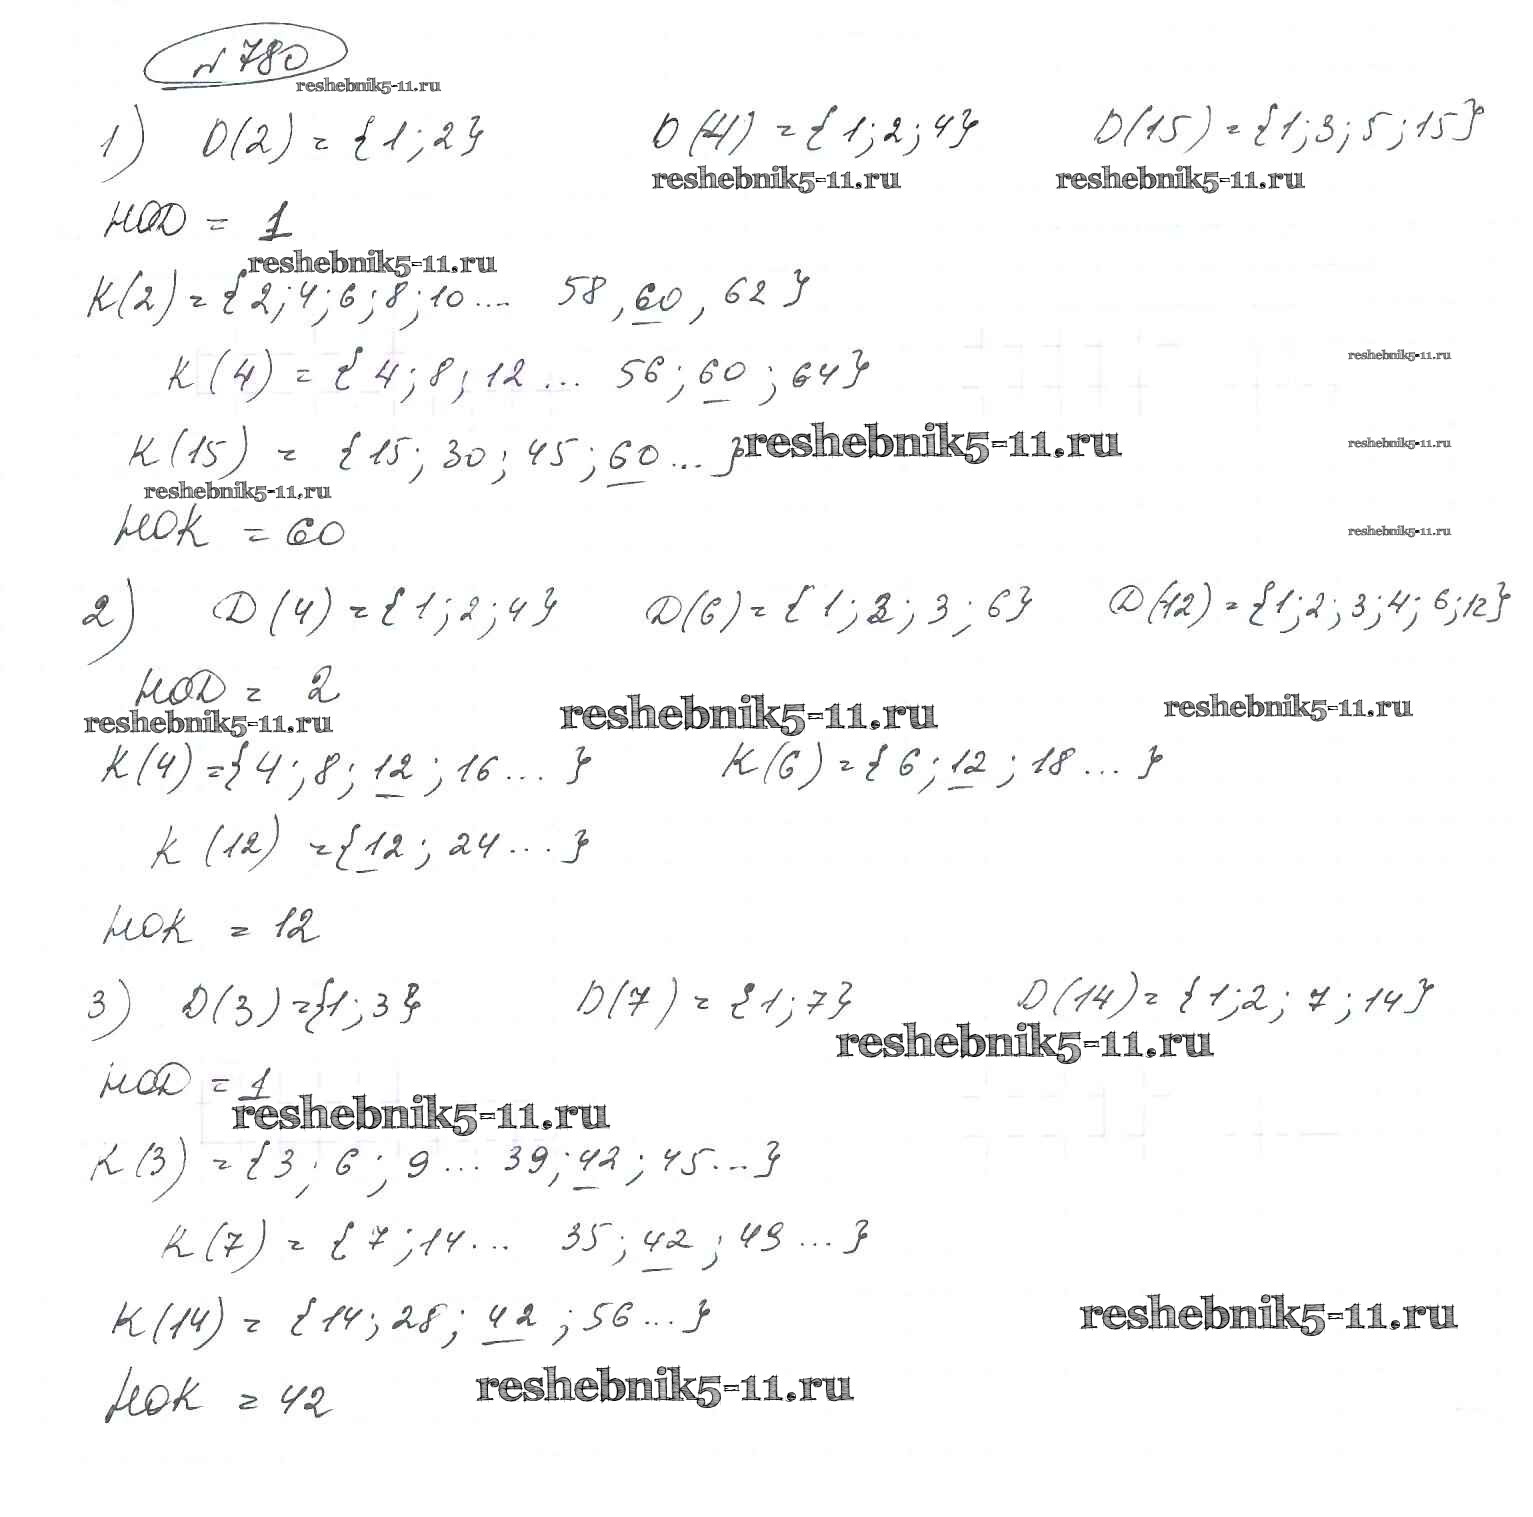 № 780
reshebnik5-11.ru
1) D(2) = {1; 2} D(4) = {1; 2; 4} D(15) = {1; 3; 5; 15}
reshebnik5-11.ru reshebnik5-11.ru
НОД = 1
reshebnik5-11.ru
K(2) = {2; 4; 6; 8; 10 .... 58, 60, 62}
reshebnik5-11.ru
K(4) = {4; 8; 12 ... 56; 60; 64}
K(15) = {15; 30; 45; 60 ... }
reshebnik5-11.ru reshebnik5-11.ru
reshebnik5-11.ru
НОК = 60
reshebnik5-11.ru
2) D(4) = {1; 2; 4} D(6) = {1; 2; 3; 6} D(12) = {1; 2; 3; 4; 6; 12}
НОД = 2
reshebnik5-11.ru reshebnik5-11.ru reshebnik5-11.ru
K(4) = {4; 8; 12; 16 ... } K(6) = {6; 12; 18 ... }
K(12) = {12; 24 ... }
НОК = 12
3) D(3) = {1; 3} D(7) = {1; 7} D(14) = {1; 2; 7; 14}
reshebnik5-11.ru
НОД = 1
reshebnik5-11.ru
K(3) = {3; 6; 9 ... 39; 42; 45 ... }
K(7) = {7; 14 ... 35; 42; 49 ... }
K(14) = {14; 28; 42; 56 ... }
reshebnik5-11.ru
НОК = 42
reshebnik5-11.ru